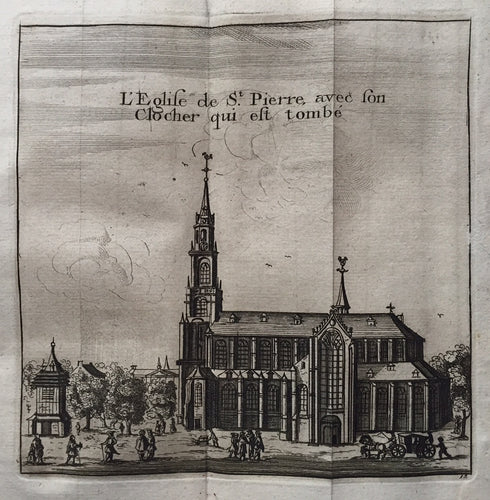 L'Egliſe de S.t Pierre, avec ſon
Clocher qui eſt tombé